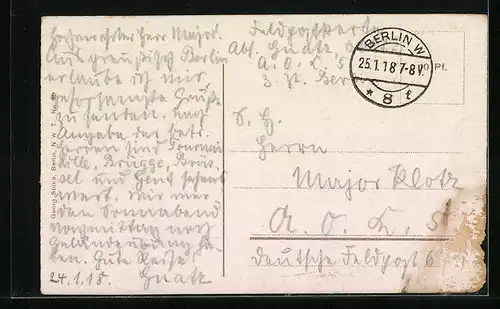 Hochverehrter Herr Major!
Aus preußisch Berlin
erlaube ich mir
gehorsamste Grüße
zu senden. nach
Angabe der
Herren sind Tournai
Lille, Brügge, Brüs-
sel und Gent sehens
wert. wir
den Sonnabend
vormittag noch
Geländeübung
Gute Reise
24.1.18. Gnatz
Georg Stilke, Berlin, N W 7, No.
Feldpostkarte
Abs. Gnatz,
A. O. K. 5
z. Zt. Berlin
BERLIN W
25.1.18 7-8 V.
* 8 f
Pf.
S. H.
Herrn
Major Klotz
A. O. K. 5
Deutsche Feldpost